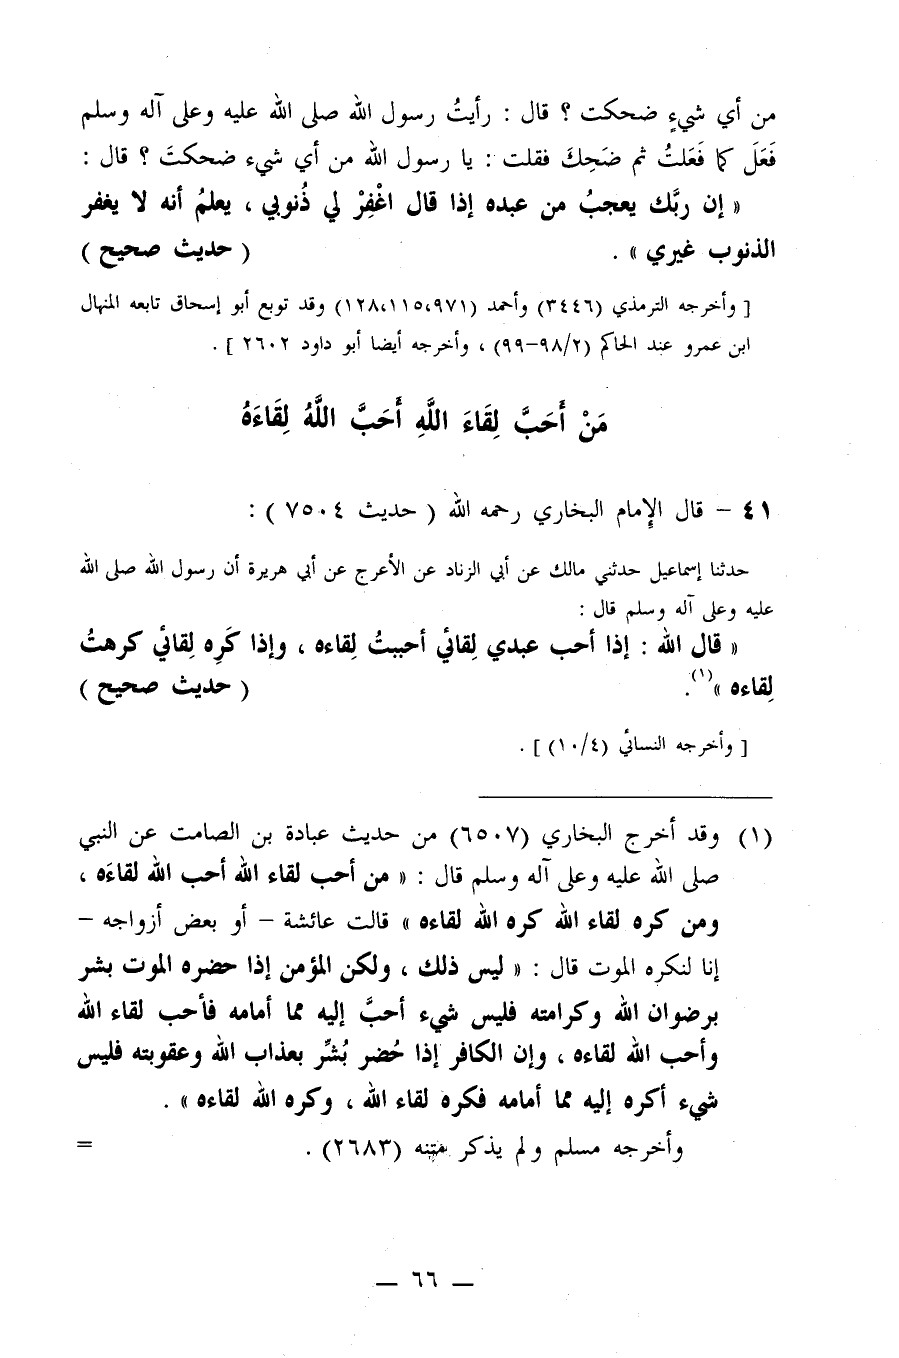 من أي شيءٍ ضحكت ؟ قال : رأيتُ رسول الله صلى الله عليه وعلى آله وسلم
فَعَلَ كما فَعَلتُ ثم ضَحِكَ فقلت : يا رسول الله من أي شيء ضحكتَ ؟ قال :
« إن ربَّك يعجبُ من عبده إذا قال اغْفِرْ لي ذُنوبي ، يعلمُ أنه لا يغفر
الذنوب غيري » . ( حديث صحيح )
[ وأخرجه الترمذي (٣٤٤٦) وأحمد (١٢٨،١١٥،٩٧١) وقد توبع أبو إسحاق تابعه المنهال
ابن عمرو عند الحاكم (٩٨/٢-٩٩) ، وأخرجه أيضا أبو داود ٢٦٠٢ ] .
مَنْ أَحَبَّ لِقَاءَ اللَّهِ أَحَبَّ اللَّهُ لِقَاءَهُ
٤١ - قال الإمام البخاري رحمه الله ( حديث ٧٥٠٤ ) :
حدثنا إسماعيل حدثني مالك عن أبي الزناد عن الأعرج عن أبي هريرة أن رسول الله صلى الله
عليه وعلى آله وسلم قال :
« قال الله : إذا أحب عبدي لِقائي أحببتُ لِقاءه ، وإذا كَرِه لِقائي كرهتُ
لِقاءه »(١). ( حديث صحيح )
[ وأخرجه النسائي (١٠/٤) ] .
(١) وقد أخرج البخاري (٦٥٠٧) من حديث عبادة بن الصامت عن النبي
صلى الله عليه وعلى آله وسلم قال : « من أحب لقاء الله أحب الله لقاءَه ،
ومن كره لقاء الله كره الله لقاءه » قالت عائشة - أو بعض أزواجه -
إنا لنكره الموت قال : « ليس ذلك ، ولكن المؤمن إذا حضره الموت بشر
برضوان الله وكرامته فليس شيء أحبَّ إليه مما أمامه فأحب لقاء الله
وأحب الله لقاءه ، وإن الكافر إذا حُضر بُشِّر بعذاب الله وعقوبته فليس
شيء أكره إليه مما أمامه فكره لقاء الله ، وكره الله لقاءه » .
وأخرجه مسلم ولم يذكر متنه (٢٦٨٣) . =
— ٦٦ —